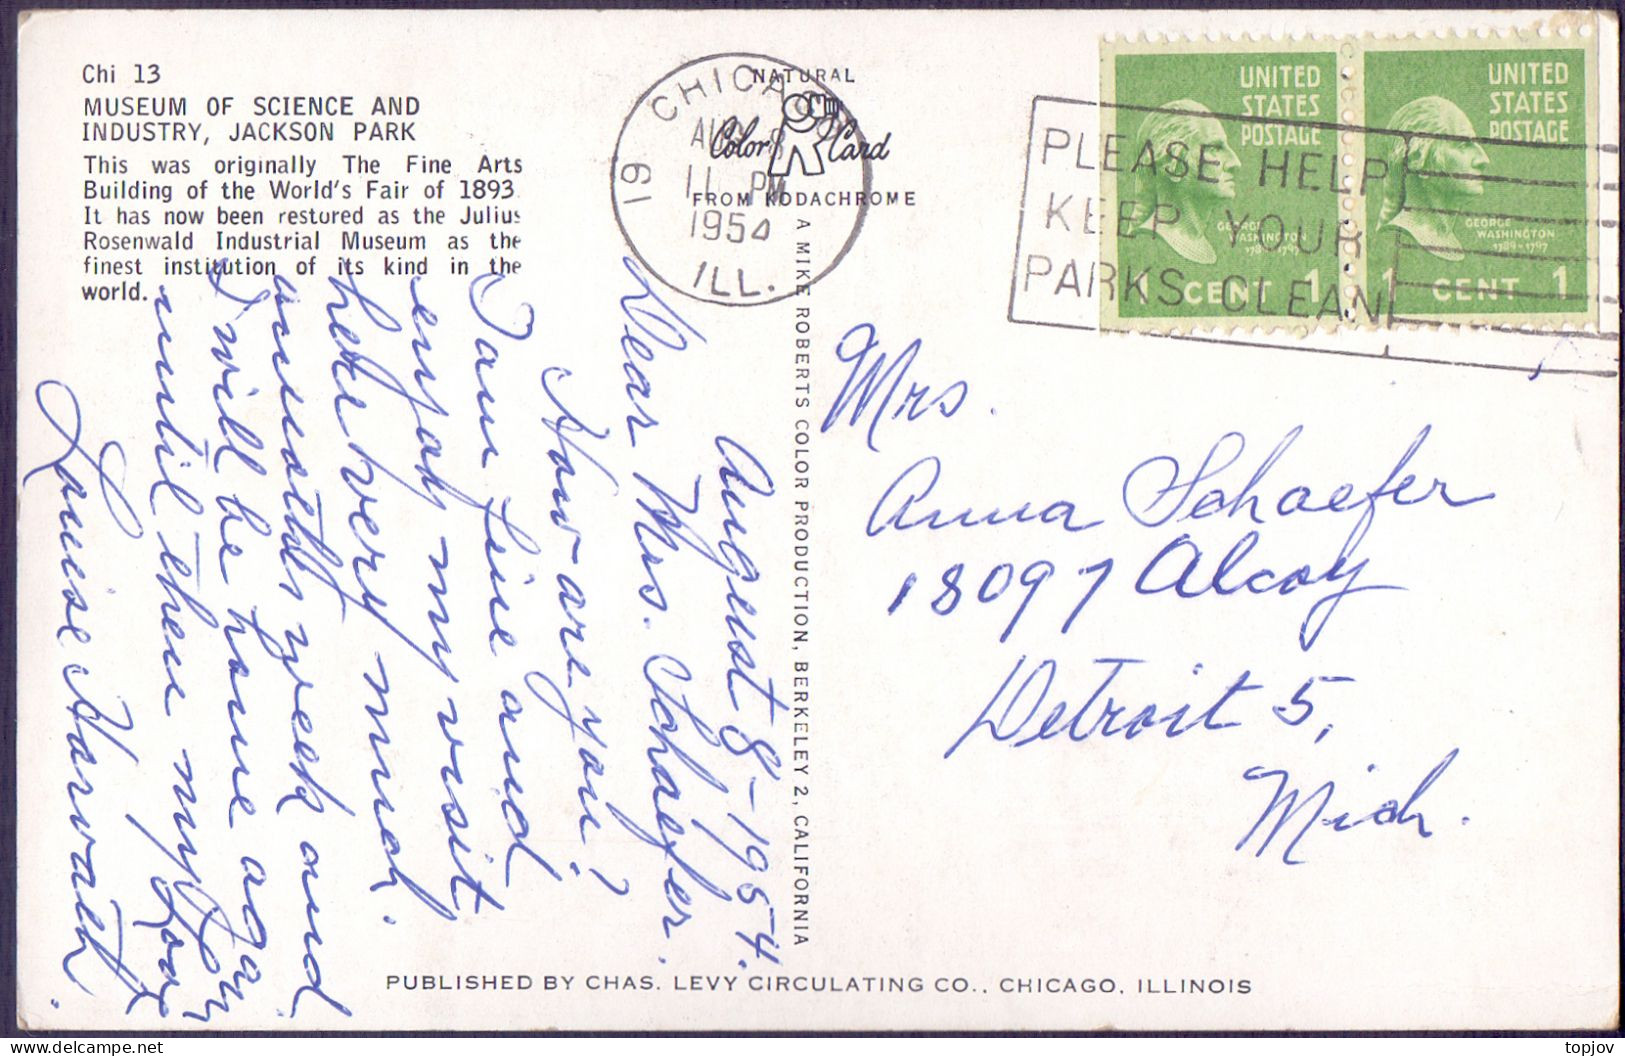 Chi 13
MUSEUM OF SCIENCE AND
INDUSTRY, JACKSON PARK
This was originally The Fine Arts
Building of the World's Fair of 1893.
It has now been restored as the Julius
Rosenwald Industrial Museum as the
finest institution of its kind in the
world.
August 8-1954.
Dear Mrs. Schaefer.
How are you?
I am fine and
enjoy my visit
here very much.
another week and
I will be home again
until then my love
Louise Harvath.
NATURAL
Color Card
FROM KODACHROME
CHICAGO
19
AUG 8
11 PM
1954
ILL.
A MIKE ROBERTS COLOR PRODUCTION, BERKELEY 2, CALIFORNIA
PLEASE HELP
KEEP YOUR
PARKS CLEAN
UNITED
STATES
POSTAGE
GEORGE
WASHINGTON
1789-1797
1 CENT 1
UNITED
STATES
POSTAGE
GEORGE
WASHINGTON
1789-1797
1 CENT 1
Mrs.
Anna Schaefer
18097 Alcoy
Detroit 5,
Mich.
PUBLISHED BY CHAS. LEVY CIRCULATING CO., CHICAGO, ILLINOIS
topjov